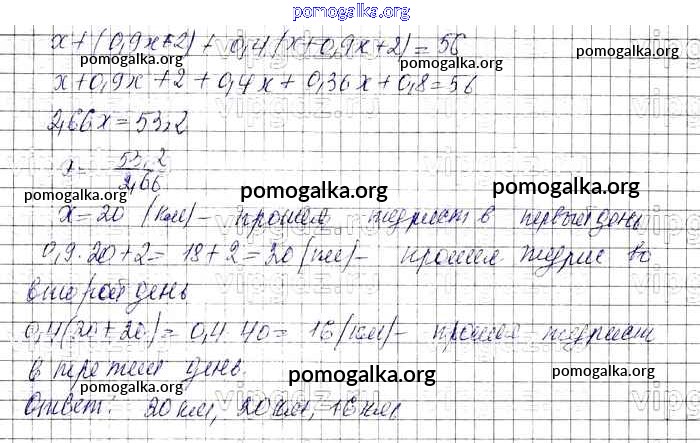 pomogalka.org
x + (0,9x + 2) + 0,4(x + 0,9x + 2) = 56
pomogalka.org pomogalka.org
x + 0,9x + 2 + 0,4x + 0,36x + 0,8 = 56
2,66x = 53,2
x = 53,2 / 2,66
pomogalka.org pomogalka.org
x = 20 (км) – прошел турист в первый день
pomogalka.org
0,9 · 20 + 2 = 18 + 2 = 20 (км) – прошел во
второй день
pomogalka.org pomogalka.org
0,4(20 + 20) = 0,4 · 40 = 16 (км) – прошел турист
в третий день.
pomogalka.org pomogalka.org pomogalka.org
Ответ: 20 км, 20 км, 16 км.